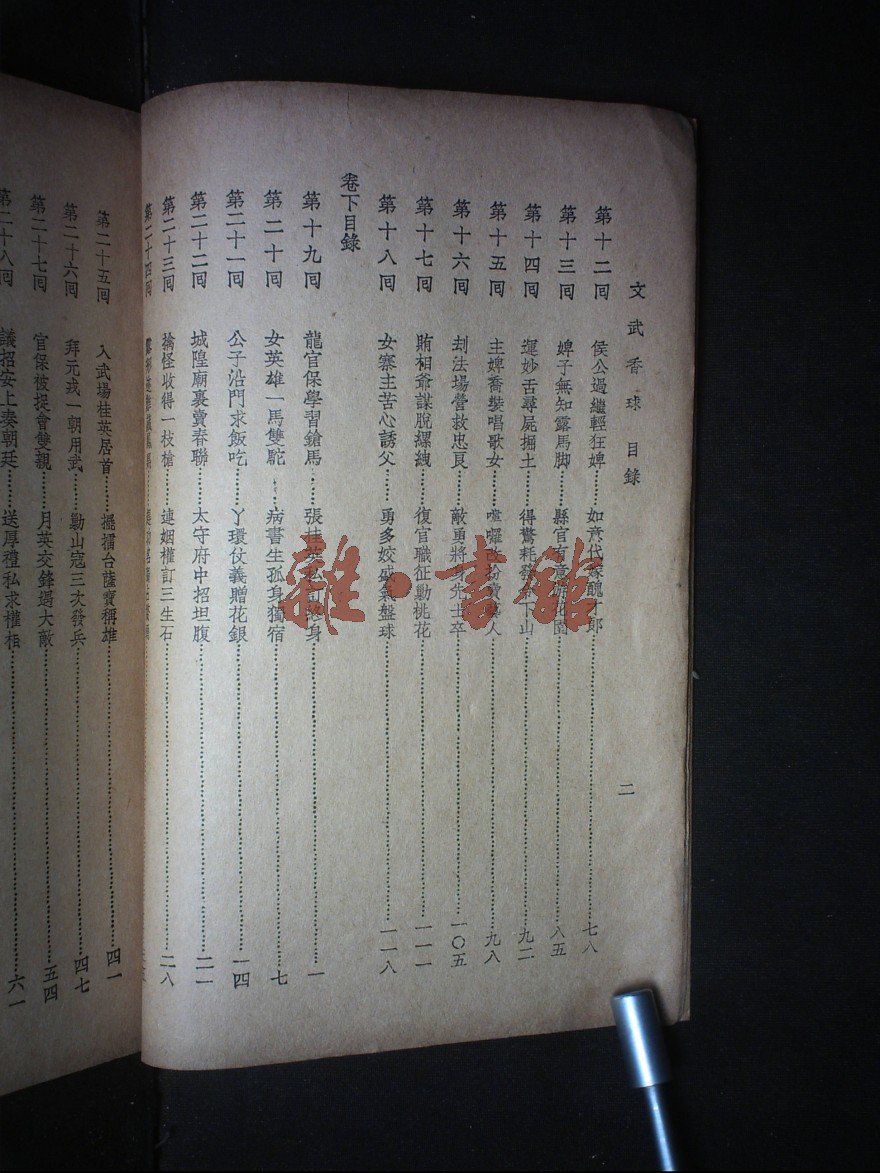 文武香球 目錄
二
第十二回 侯公過繼輕狂婢……如意代嫁醜才郎……七八
第十三回 婢子無知露馬脚……縣官有意游花園……八五
第十四回 運妙舌尋屍掘土……得驚耗發兵下山……九二
第十五回 主婢喬裝唱歌女……改扮賣藝人……九八
第十六回 刦法場營救忠良……敵勇將身先士卒……一〇五
第十七回 賄相爺謀脫縲絏……復官職征勦桃花……一一一
第十八回 女寨主苦心誘父……勇多姣盛氣盤球……一一八
卷下目錄
第十九回 龍官保學習鎗馬……張桂英私訂終身……一
第二十回 女英雄一馬雙駝……病書生孤身獨宿……七
第二十一回 公子沿門求飯吃……丫環仗義贈花銀……一四
第二十二回 城隍廟裹賣春聯……太守府中招坦腹……二一
第二十三回 擒怪收得一枝槍……連姻權訂三生石……二八
第二十四回
第二十五回 入武場桂英居首……擺擂台薩寶稱雄……四一
第二十六回 拜元戎一朝用武……勦山寇三次發兵……四七
第二十七回 官保被捉會雙親……月英交鋒遇大敵……五四
第二十八回 議招安上奏朝廷……送厚禮私求權相……六一
雜·書館